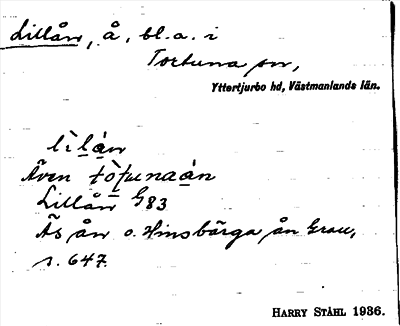 Lillån, å, bl. a. i
Tortuna sn,
Yttertjurbo hd, Västmanlands län.
lìlán
Även tòṭunaán
Lillån G83
Ãs ån o. Hinsbärga ån Grau,
s. 647.
HARRY STÅHL 1936.